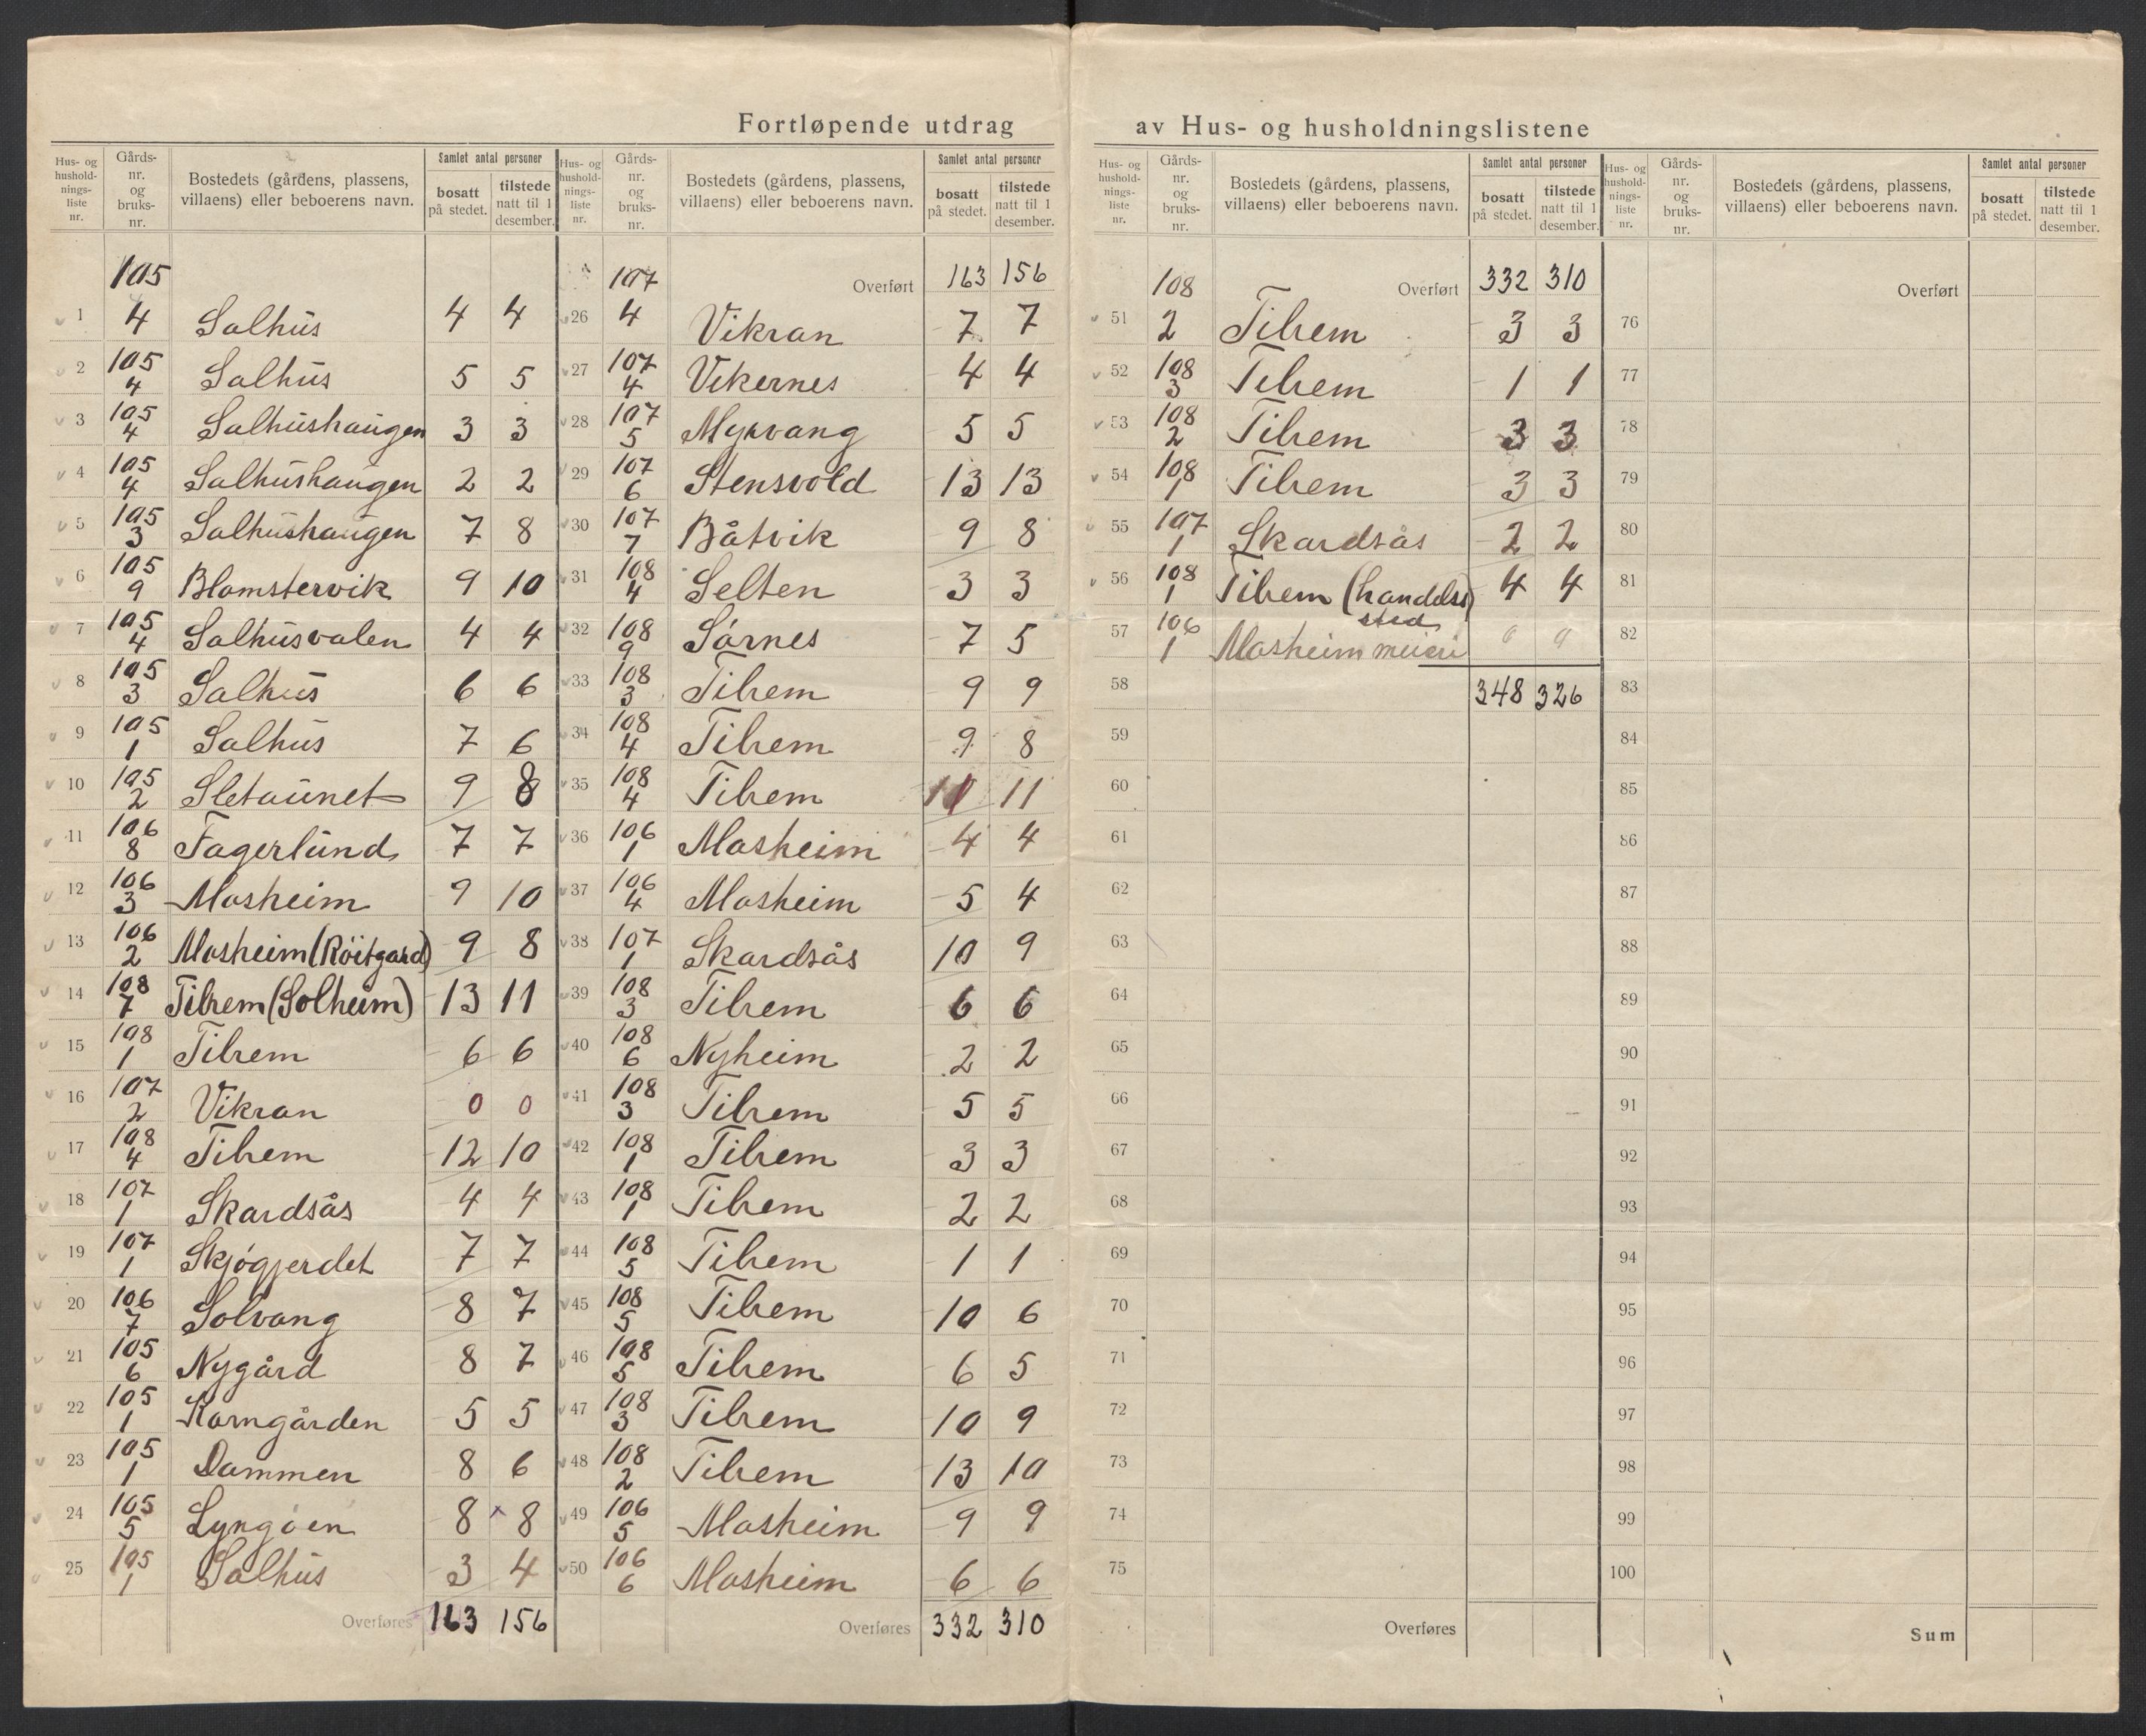 Fortløpende utdrag av Hus- og husholdningslistene
Hus- og hushold-nings-liste nr. | Gårds-nr. og bruks-nr. | Bostedets (gårdens, plassens, villaens) eller beboerens navn. | Samlet antal personer | bosatt på stedet. | tilstede natt til 1 desember.
1 | 105 4 | Salhus | 4 | 4
2 | 105 4 | Salhus | 5 | 5
3 | 105 4 | Salhushaugen | 3 | 3
4 | 105 4 | Salhushaugen | 2 | 2
5 | 105 3 | Salhushaugen | 7 | 8
6 | 105 9 | Blomstervik | 9 | 10
7 | 105 4 | Salhusvalen | 4 | 4
8 | 105 3 | Salhus | 6 | 6
9 | 105 1 | Salhus | 7 | 6
10 | 105 2 | Sletaunet | 9 | 8
11 | 106 8 | Fagerlund | 7 | 7
12 | 106 3 | Mosheim | 9 | 10
13 | 106 2 | Mosheim (Röitgard) | 9 | 8
14 | 108 7 | Tilrem (Solheim) | 13 | 11
15 | 108 1 | Tilrem | 6 | 6
16 | 107 2 | Vikran | 0 | 0
17 | 108 4 | Tilrem | 12 | 10
18 | 107 1 | Skardsås | 4 | 4
19 | 107 1 | Skjøgjerdet | 7 | 7
20 | 106 7 | Solvang | 8 | 7
21 | 105 6 | Nygård | 8 | 7
22 | 105 1 | Korngården | 5 | 5
23 | 105 1 | Dammen | 8 | 6
24 | 105 5 | Lyngøen | 8 | 8
25 | 105 1 | Salhus | 3 | 4
Overføres 163 156
Hus- og hushold-nings-liste nr. | Gårds-nr. og bruks-nr. | Bostedets (gårdens, plassens, villaens) eller beboerens navn. | Samlet antal personer | bosatt på stedet. | tilstede natt til 1 desember.
Overført 163 156
26 | 107 4 | Vikran | 7 | 7
27 | 107 4 | Vikernes | 4 | 4
28 | 107 5 | Myrvang | 5 | 5
29 | 107 6 | Stensvold | 13 | 13
30 | 107 7 | Båtvik | 9 | 8
31 | 108 4 | Selten | 3 | 3
32 | 108 9 | Sørnes | 7 | 5
33 | 108 3 | Tilrem | 9 | 9
34 | 108 4 | Tilrem | 9 | 8
35 | 108 4 | Tilrem | 11
36 | 106 1 | Mosheim | 4 | 4
37 | 106 4 | Mosheim | 5 | 4
38 | 107 1 | Skardsås | 10 | 9
39 | 108 3 | Tilrem | 6 | 6
40 | 108 6 | Nyheim | 2 | 2
41 | 108 3 | Tilrem | 5 | 5
42 | 108 1 | Tilrem | 3 | 3
43 | 108 1 | Tilrem | 2 | 2
44 | 108 5 | Tilrem | 1 | 1
45 | 108 5 | Tilrem | 10 | 6
46 | 108 5 | Tilrem | 6 | 5
47 | 108 3 | Tilrem | 10 | 9
48 | 108 2 | Tilrem | 13 | 10
49 | 106 5 | Mosheim | 9 | 9
50 | 106 6 | Mosheim | 6 | 6
Overføres 332 310
Hus- og hushold-nings-liste nr. | Gårds-nr. og bruks-nr. | Bostedets (gårdens, plassens, villaens) eller beboerens navn. | Samlet antal personer | bosatt på stedet. | tilstede natt til 1 desember.
Overført 332 310
51 | 108 2 | Tilrem | 3 | 3
52 | 108 3 | Tilrem | 1 | 1
53 | 108 2 | Tilrem | 3 | 3
54 | 108 1 | Tilrem | 3 | 3
55 | 107 1 | Skardsås | 2 | 2
56 | 108 1 | Tilrem (handelssted) | 4 | 4
57 | 106 1 | Mosheim meieri | 0 | 0
58 | 348 | 326
59
60
61
62
63
64
65
66
67
68
69
70
71
72
73
74
75
Overføres
Hus- og hushold-nings-liste nr. | Gårds-nr. og bruks-nr. | Bostedets (gårdens, plassens, villaens) eller beboerens navn. | Samlet antal personer | bosatt på stedet. | tilstede natt til 1 desember.
Overført
76
77
78
79
80
81
82
83
84
85
86
87
88
89
90
91
92
93
94
95
96
97
98
99
100
Sum